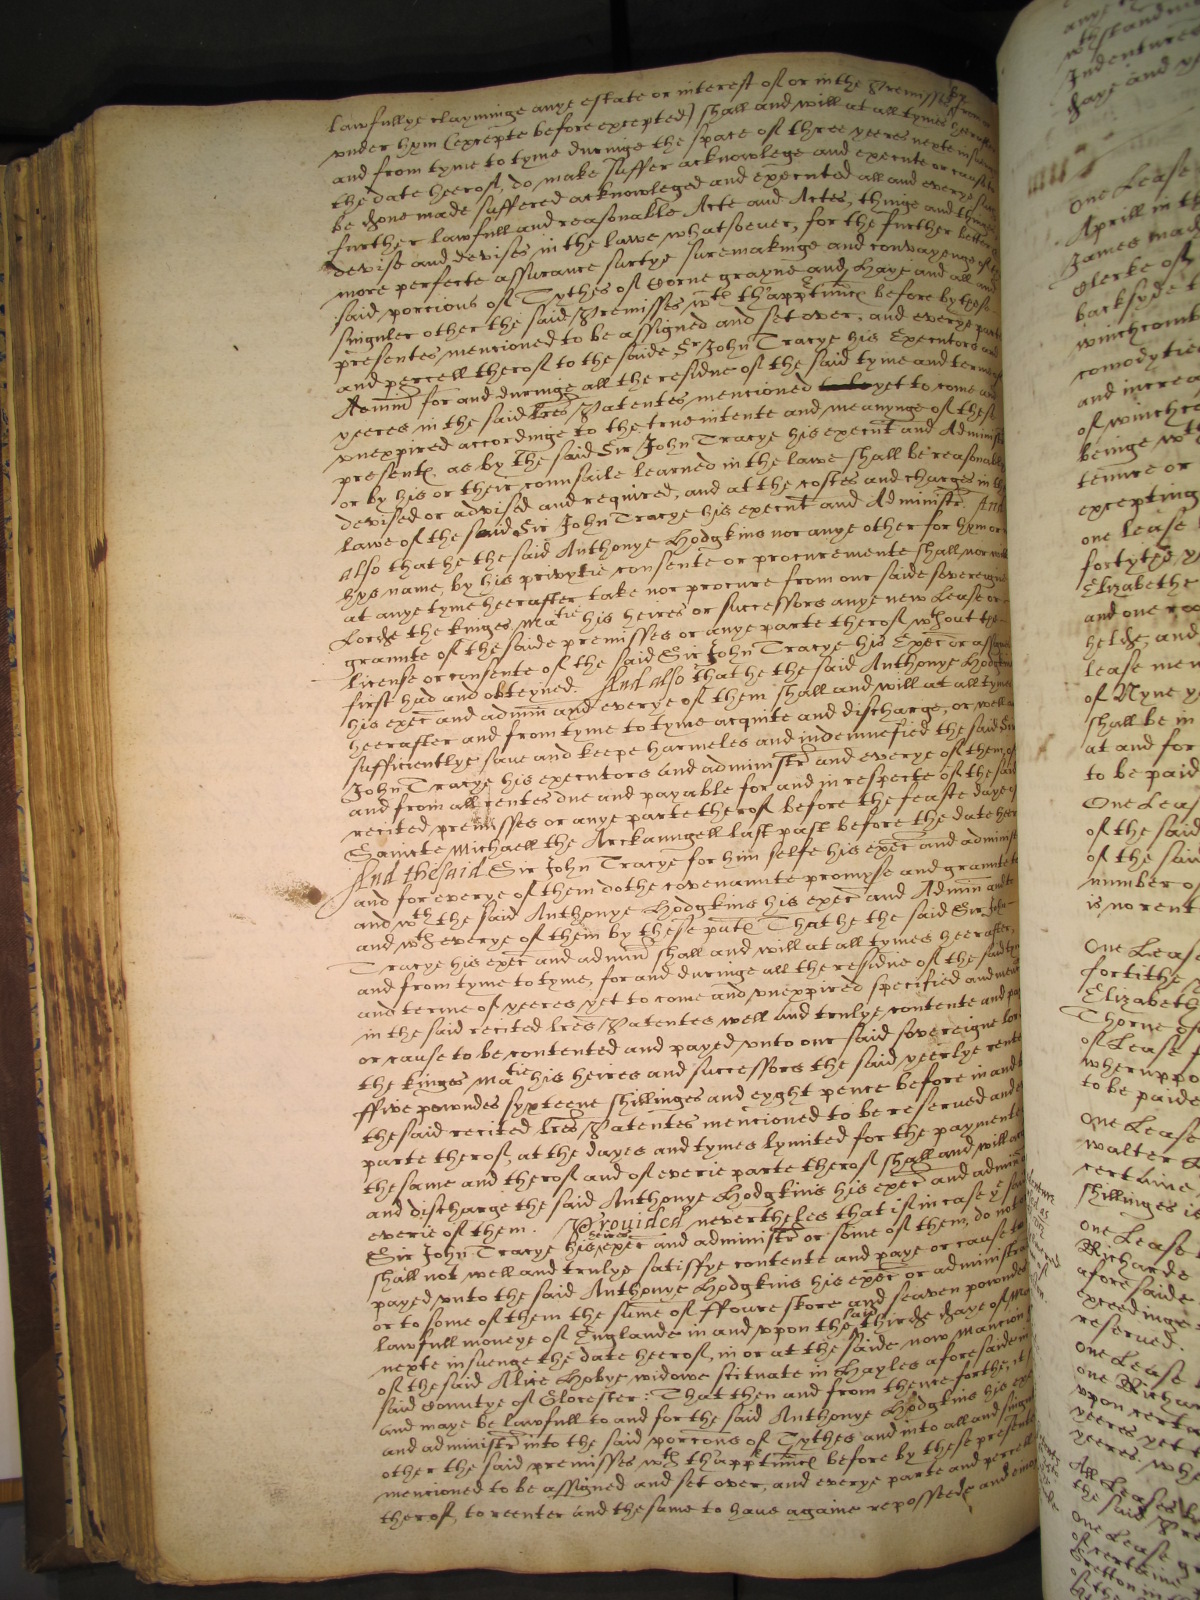 lawfullye clayminge anye estate or interest of or in the premisses by from or
vnder hym (excepte before excepted) shall and will at all tymes heerafter
and from tyme to tyme duringe the space of three yeeres nexte insuenge
the date heerof, do make suffer acknowlege and execute or cause to
be done made suffered acknowleged and executed all and everye suche
further lawfull and reasonable Acte and Actes, thinge and thinges
devise and devises in the lawe whatsoever, for the further better &
more perfecte assurance suertye suremakinge and convayenge of the
said porcions of Tythes of Corne grayne and Haye and all and
singuler other the said premisses wth thapptinnc before by these
presentes mencioned to be assigned and set over, and everye parte
and percell therof to the saide Sr John Tracye his Executors and
Admin for and duringe all the residue of the said tyme and terme of
yeeres in the said lres Patentes mencioned yet to come and
vnexpired accordinge to the true intente and meanynge of thes
present, as by the said Sir John Tracye his execut and Administ
or by his or their counsaile learned in the lawe shall be reasonably
devised or advised and required, and at the costes and charges in the
lawe of the said Sir John Tracye his execut and Administr. And
also that he the said Anthonye Hodgkins nor anye other for hym or in
hys name, by his privytie consente or procuremente shall nor will
at anye tyme heerafter take nor procure from our saide sovereigne
Lorde the kinges Matie his heires or successors anye new Lease or
graunte of the saide premisses or anye parte therof wthout the
license or consente of the said Sir John Tracye his Exec or assignes
first had and obteyned. And also that he the said Anthonye Hodgkins
his exec and admin and everye of them shall and will at all tymes
heerafter and from tyme to tyme acquite and discharge, or well and
sufficientlye save and keepe harmeles and indemnefied the said Sir
John Tracye his executors and administr and everye of them, of
and from all rentes due and payable for and in respecte of the said
recited premisses or anye parte therof before the feaste daye of
Saincte Michaell the Arckanngell last past before the date heerof
And the said Sir John Tracye for him selfe his exec and administ
and for everye of them dothe covenannte promyse and graunte to
and wth the said Anthonye Hodgkins his exec and Admin and to
and wth everye of them by these pnts That he the said Sir John
Tracye his exec and admin shall and will at all tymes heerafter,
and from tyme to tyme, for and duringe all the residue of the said tyme
and terme of yeeres yet to come and vnexpired specified and
in the said recited lres Patentes well and trulye contente and paye
or cause to be contented and payed vnto our said sovereigne lord
the kinges Matie his heires and successors the said yeerlye rente
ffive powndes syxteene shillinges and eyght pence before in and by
the said recited lres Patentes mencioned to be reserved and
parte therof, at the dayes and tymes lymited for the paymente
the same and therof and of everie parte therof shall and will
and discharge the said Anthonye Hodgkins his exec and admin
everie of them. Provided neverthelês that if in case ye said
Sir John Tracye his heires exec and administr or some of them, do not
shall not well and trulye satisfye contente and paye or cause to
payed vnto the said Anthonye Hodgkins his exec or administr
or to some of them the sume of ffoure skore and seaven powndes
lawfull moneye of Englande in and vpon the said thirde daye of
nexte insuenge the date heerof, in or at the saide now mancion
of the said Alice Hobye widowe scituate in Hayles aforesaide in
said countye of Glocester: That then and from thence forthe, it
and maye be lawfull to and for the said Anthonye Hodgkins his exec
and administr into the said porcons of Tythes and into all and singuler
other the said premisses wth thapptinnc before by these presentes
mencioned to be assigned and set over, and everye parte and percell
therof, to reenter and the same to have againe repossede and
One Lease
Aprill in th
James mad
Clerke of
backsyde
winchcomb
comodytie
and increa
of winchco
beinge wth
tenure or
excepting
one lease
fortythe
Elizabethe
and one
helde, and
lease men
of Nyne ye
shall be in
at and for
to be paid
One Leas
of the said
of the said
number of
is no rent
One Lease
fortithe
Elizabeth
Thorne of
of Lease
wheruppo
to be paide
One Lease
walter
certaine
shillinges is
one Lease
Richarde
aforesaide
exceedinge
reserved.
One Lease
one Richar
vpon certa
yeeres yet
yeeres. whe
All Leases
the said
One Lease
of certaine